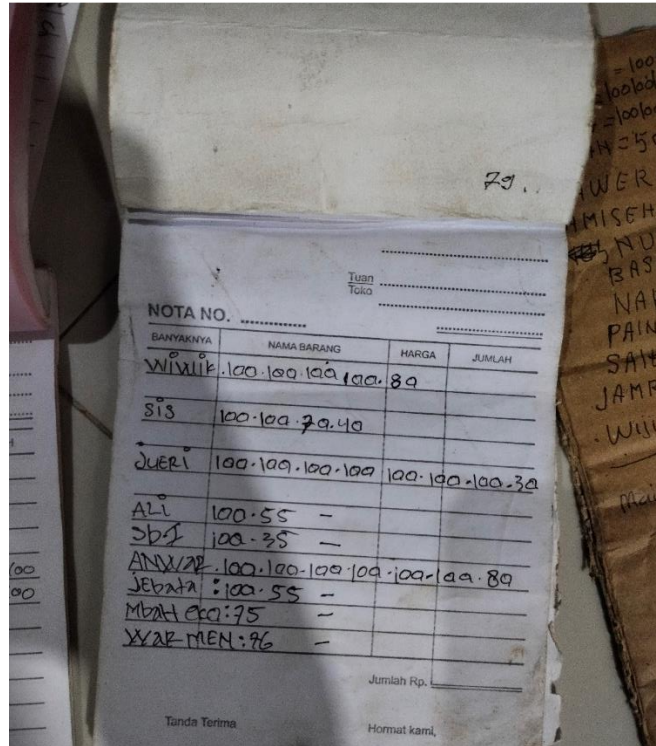 79..
Tuan
Toko
NOTA NO.
BANYAKNYA NAMA BARANG HARGA JUMLAH
WiWiK.100.100.100.100.80
SiS 100.100.70.40
JUERi 100.100.100.100 100.100.100.30
ALi 100.55 -
100.35 -
ANWAR.100.100.100.100.100.100.80
JEbAtA:100.55 -
MbAH eco:75 -
WAR MEN:76 -
Jumlah Rp.
Tanda Terima Hormat kami,
=100
=100
=50
WER
MISEH
NU
BAS
NA
PAIN
SAI
JAMR
.Wiji
Mai